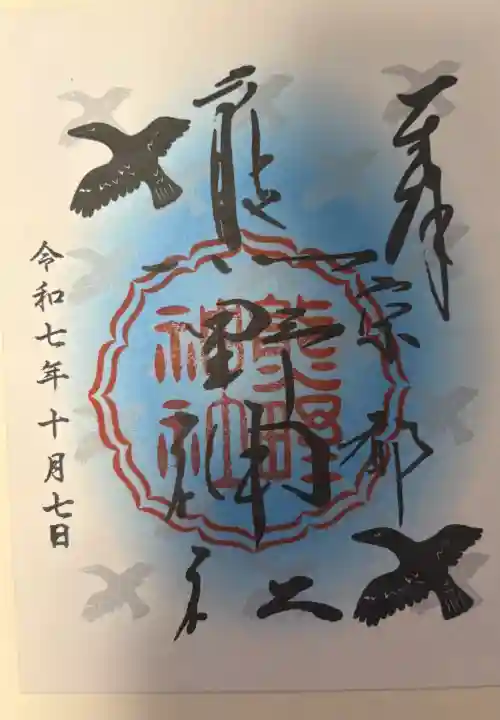 奉
熊野神社
熊野神社
令和七年十月七日